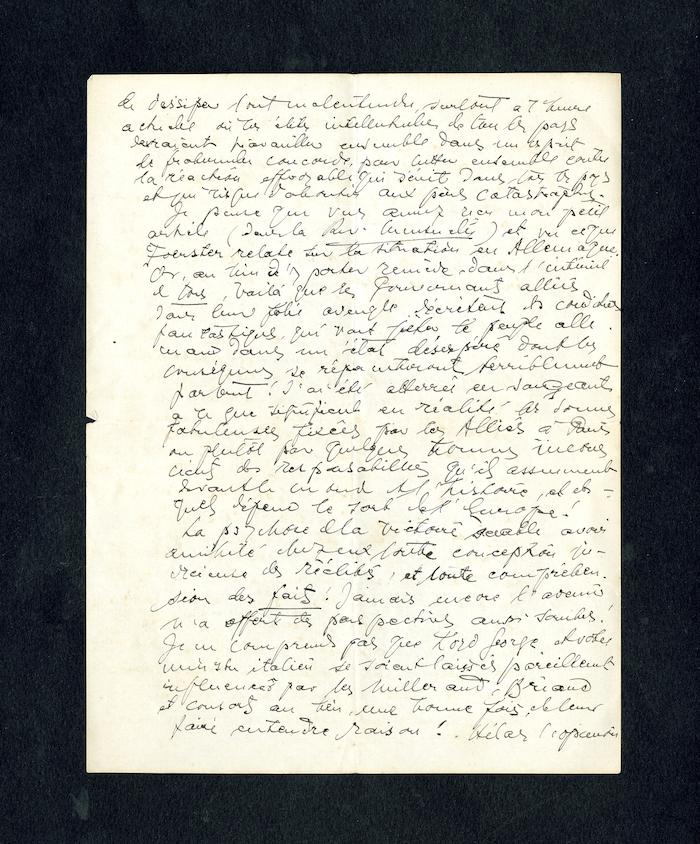 de dissiper tout malentendu, surtout à l'heure
actuelle où les élites intellectuelles de tous les pays
devraient travailler ensemble dans un esprit
de fraternelle concorde, pour lutter ensemble contre
la réaction effroyable qui sévit dans tous les pays
et qui risque d'aboutir aux pires catastrophes.
Je pense que vous aurez reçu mon petit
article (dans la Rev. Mensuelle) et vu ce que
Foerster relate sur la situation en Allemagne.
Or, au lieu d'y porter remède dans l'intérêt
de tous, voilà que les Gouvernants alliés
dans leur folie aveugle décrètent des conditions
fantastiques, qui vont jeter le peuple alle-
mand dans un état désespéré dont les
conséquences se répercuteront terriblement
partout! J'ai été atterré en songeant
à ce que signifient en réalité les sommes
fabuleuses fixées par les Alliés à Paris
ou plutôt par quelques hommes incons-
cients des responsabilités qu'ils assument
devant le monde et l'histoire, et des-
quels dépend le sort de l'Europe!
La psychose de la victoire semble avoir
annihilé chez eux toute conception ju-
dicieuse des réalités, et toute compréhen-
sion des faits! Jamais encore l'avenir
n'a offert des perspectives aussi sombres!
Je ne comprends pas que Lloyd George et votre
ministre italien se soient laissés pareillement
influencer par les Millerand, Briand
et consorts au lieu, une bonne fois, de leur
faire entendre raison! Hélas! l'opinion